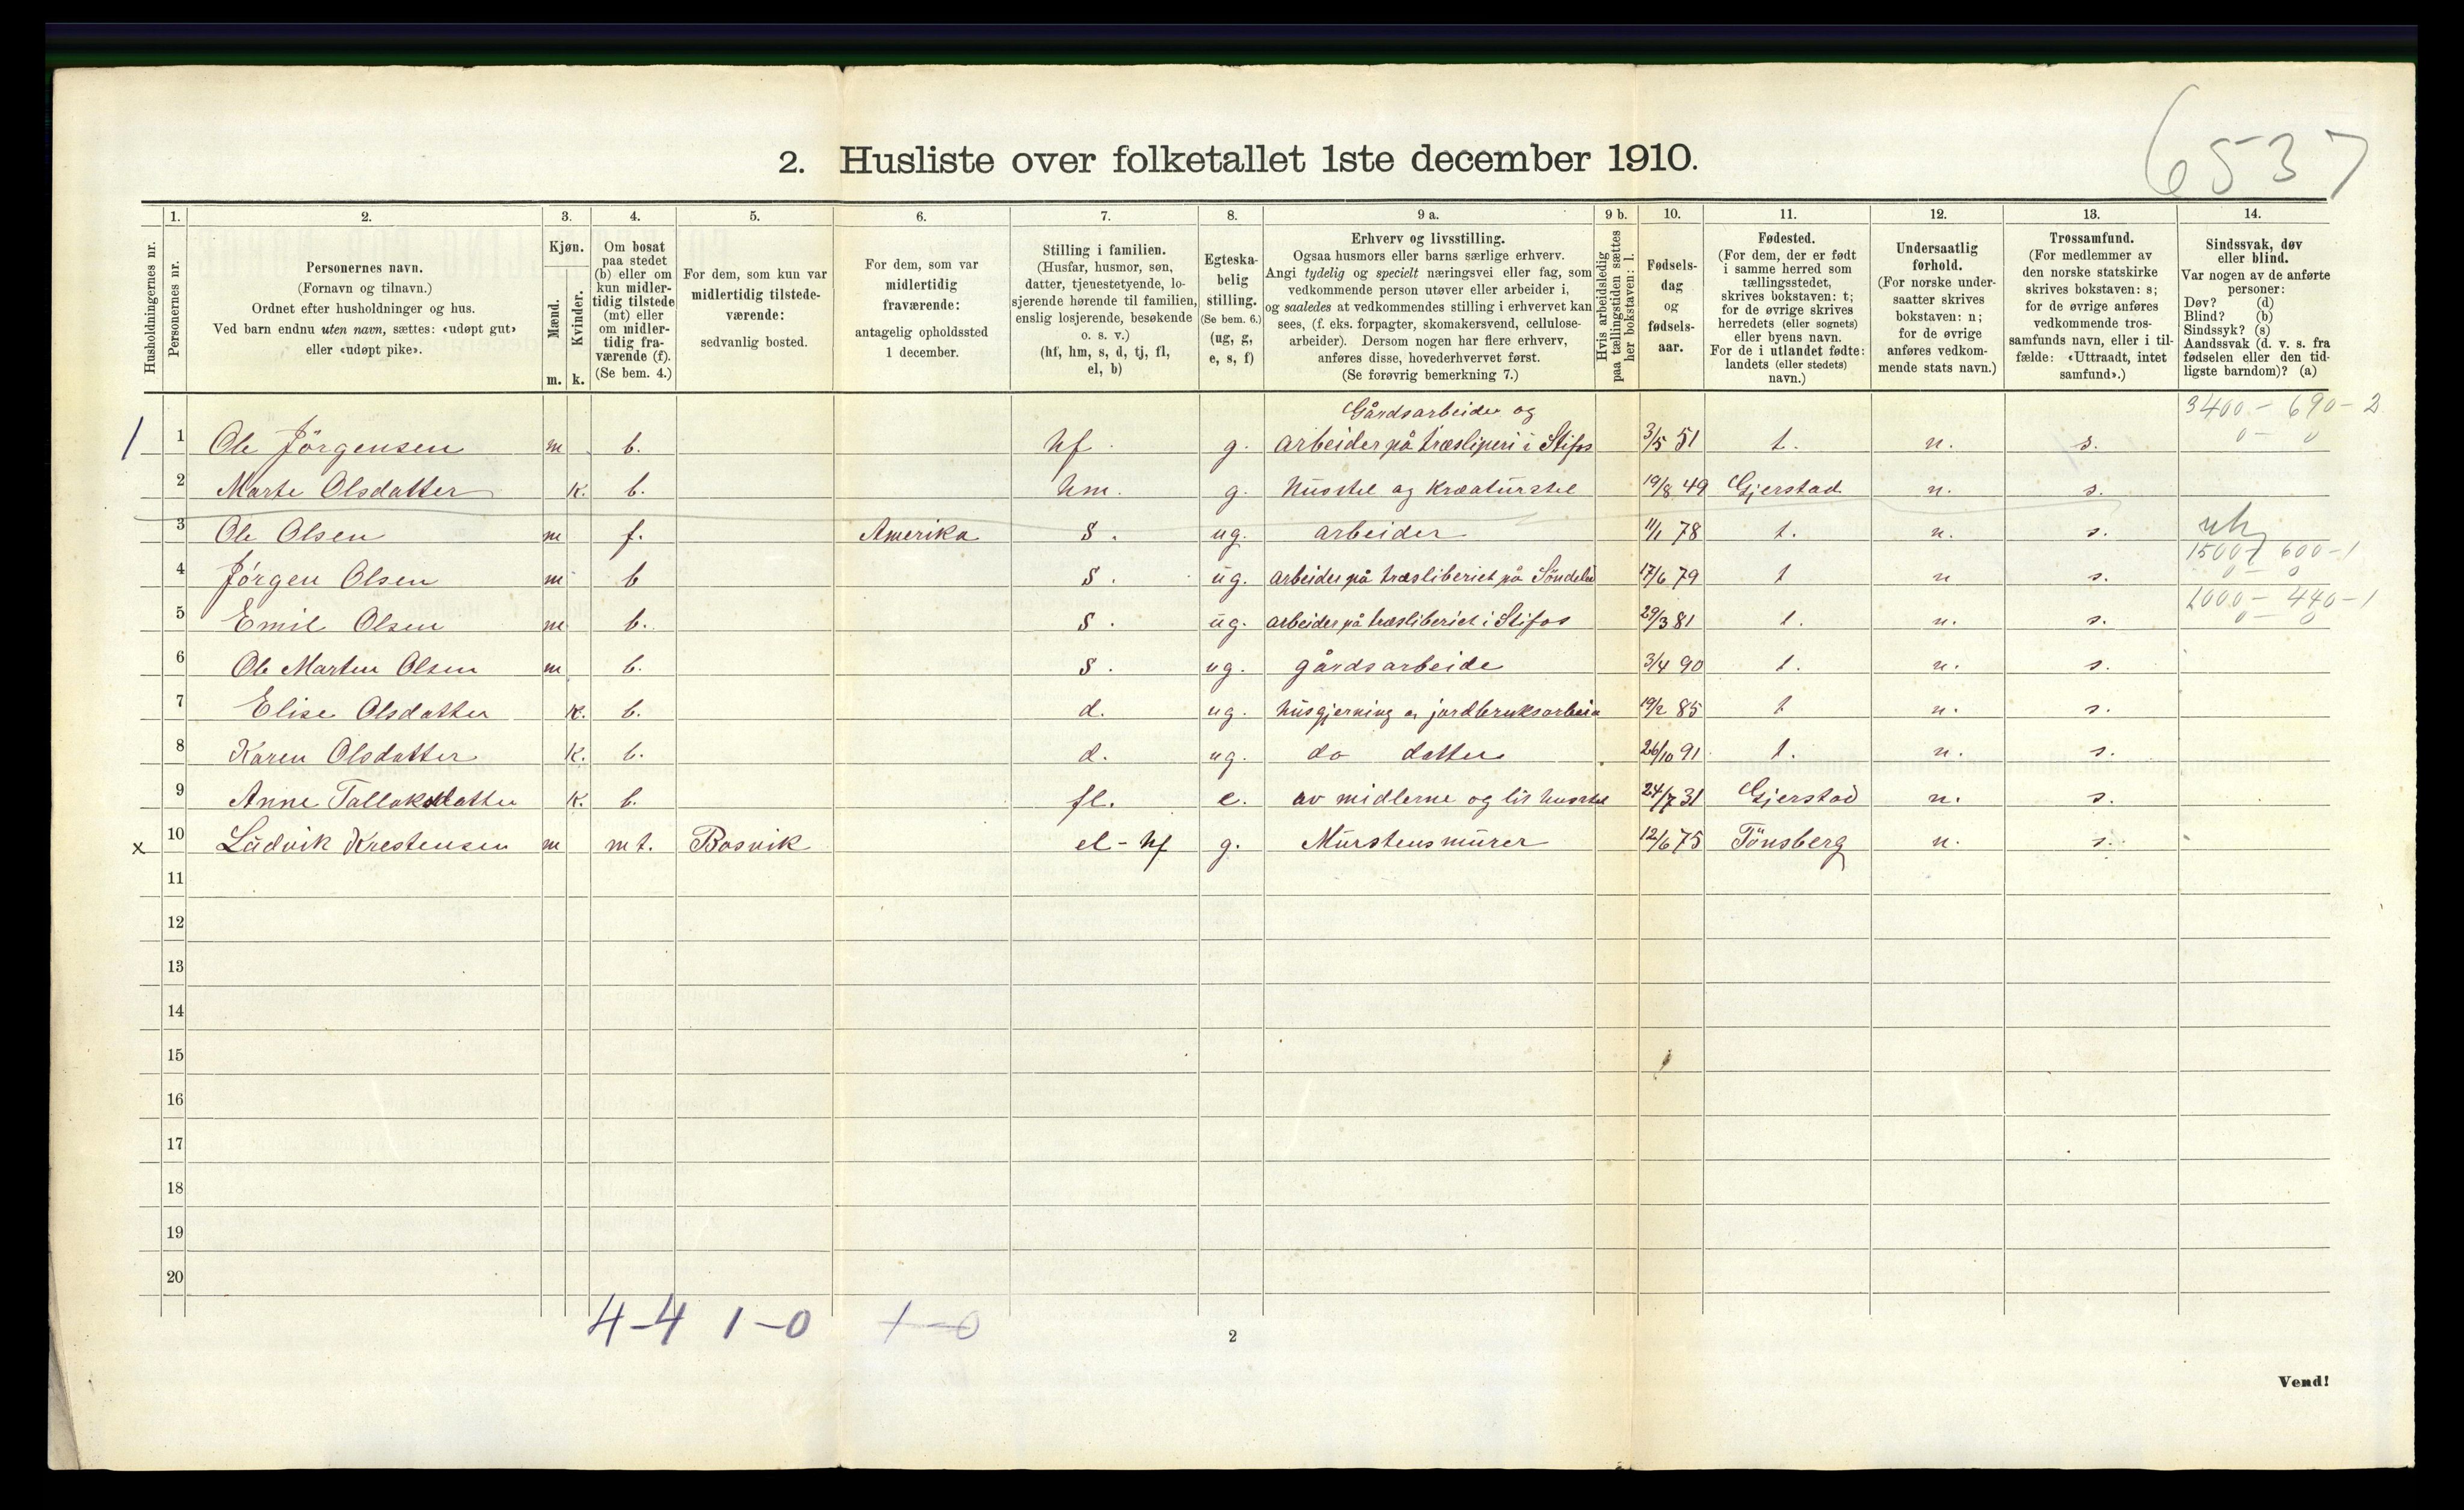 6537
2. Husliste over folketallet 1ste december 1910.
Husholdningernes nr.
1. Personernes nr.
2. Personernes navn. (Fornavn og tilnavn.) Ordnet efter husholdninger og hus. Ved barn endnu uten navn, sættes: «udøpt gut» eller «udøpt pike».
3. Kjøn. Mænd. Kvinder. m. k.
4. Om bosat paa stedet (b) eller om kun midlertidig tilstede (mt) eller om midlertidig fraværende (f). (Se bem. 4.)
5. For dem, som kun var midlertidig tilstedeværende: sedvanlig bosted.
6. For dem, som var midlertidig fraværende: antagelig opholdssted 1 december.
7. Stilling i familien. (Husfar, husmor, søn, datter, tjenestetyende, losjerende hørende til familien, enslig losjerende, besøkende o. s. v.) (hf, hm, s, d, tj, fl, el, b)
8. Egteskabelig stilling. (Se bem. 6.) (ug, g, e, s, f)
9 a. Erhverv og livsstilling. Ogsaa husmors eller barns særlige erhverv. Angi tydelig og specielt næringsvei eller fag, som vedkommende person utøver eller arbeider i, og saaledes at vedkommendes stilling i erhvervet kan sees, (f. eks. forpagter, skomakersvend, cellulosearbeider). Dersom nogen har flere erhverv, anføres disse, hovederhvervet først. (Se forøvrig bemerkning 7.)
9 b. Hvis arbeidsledig paa tællingstiden sættes her bokstaven: l.
10. Fødselsdag og fødselsaar.
11. Fødested. (For dem, der er født i samme herred som tællingsstedet, skrives bokstaven: t; for de øvrige skrives herredets (eller sognets) eller byens navn. For de i utlandet fødte: landets (eller stedets) navn.)
12. Undersaatlig forhold. (For norske undersaatter skrives bokstaven: n; for de øvrige anføres vedkommende stats navn.)
13. Trossamfund. (For medlemmer av den norske statskirke skrives bokstaven: s; for de øvrige anføres vedkommende trossamfunds navn, eller i tilfælde: «Uttraadt, intet samfund».)
14. Sindssvak, døv eller blind. Var nogen av de anførte personer: Døv? (d) Blind? (b) Sindssyk? (s) Aandssvak (d. v. s. fra fødselen eller den tidligste barndom)? (a)
Gårdsarbeider og 3400 - 690 - 2
1 1 Ole Jörgensen m b. hf. g. arbeider på træsliperi i Stifos 3/5 51 t. n. s. 0 - 0
2 Marte Olsdatter k. b. hm. g. husstel og kreaturstel 19/8 49 Gjerstad n. s.
3 Ole Olsen m f. Amerika s. ug. arbeider 11/1 78 t. n. s.
1500 - 600 - 1
4 Jörgen Olsen m b s. ug. arbeider på træsliberiet på Söndeled 17/6 79 t n s. 0 - 0
1000 - 440 - 1
5 Emil Olsen m b. s. ug. arbeider på træsliberiet i Stifos 29/3 81 t. n. s. 0 - 0
6 Ole Marten Olsen m b. s. ug. gårdsarbeide 3/4 90 t. n. s.
7 Elise Olsdatter k. b. d. ug. husgjerning og jordbruksarbeide 19/2 85 t n. s.
8 Karen Olsdatter k. b. d. ug. do datter 26/10 91 t. n. s.
9 Anne Tallaksdatter k. b. fl. e. av midlerne og lit husstel 24/7 31 Gjerstad n. s.
x 10 Ludvik Krestensen m mt. Bosvik el - hf g. Murstensmurer 12/6 75 Tönsberg n. s.
11
12
13
14
15
16
17
18
19
20
4-4 1-0 1-0
2
Vend!